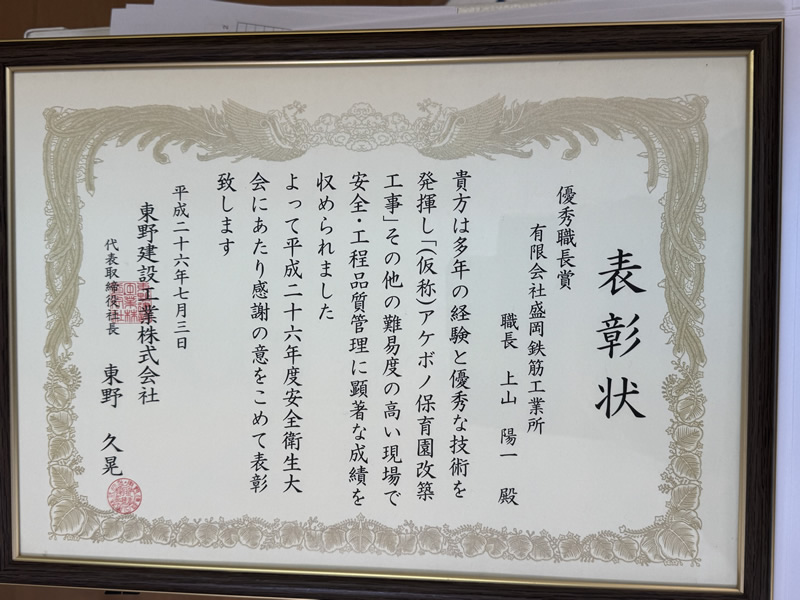 表彰状
優秀職長賞
有限会社盛岡鉄筋工業所
職長 上山 陽一 殿
貴方は多年の経験と優秀な技術を
発揮し「(仮称)アケボノ保育園改築
工事」その他の難易度の高い現場で
安全・工程品質管理に顕著な成績を
収められました
よって平成二十六年度安全衛生大
会にあたり感謝の意をこめて表彰
致します
平成二十六年七月三日
東野建設工業株式会社
代表取締役社長 東野 久晃